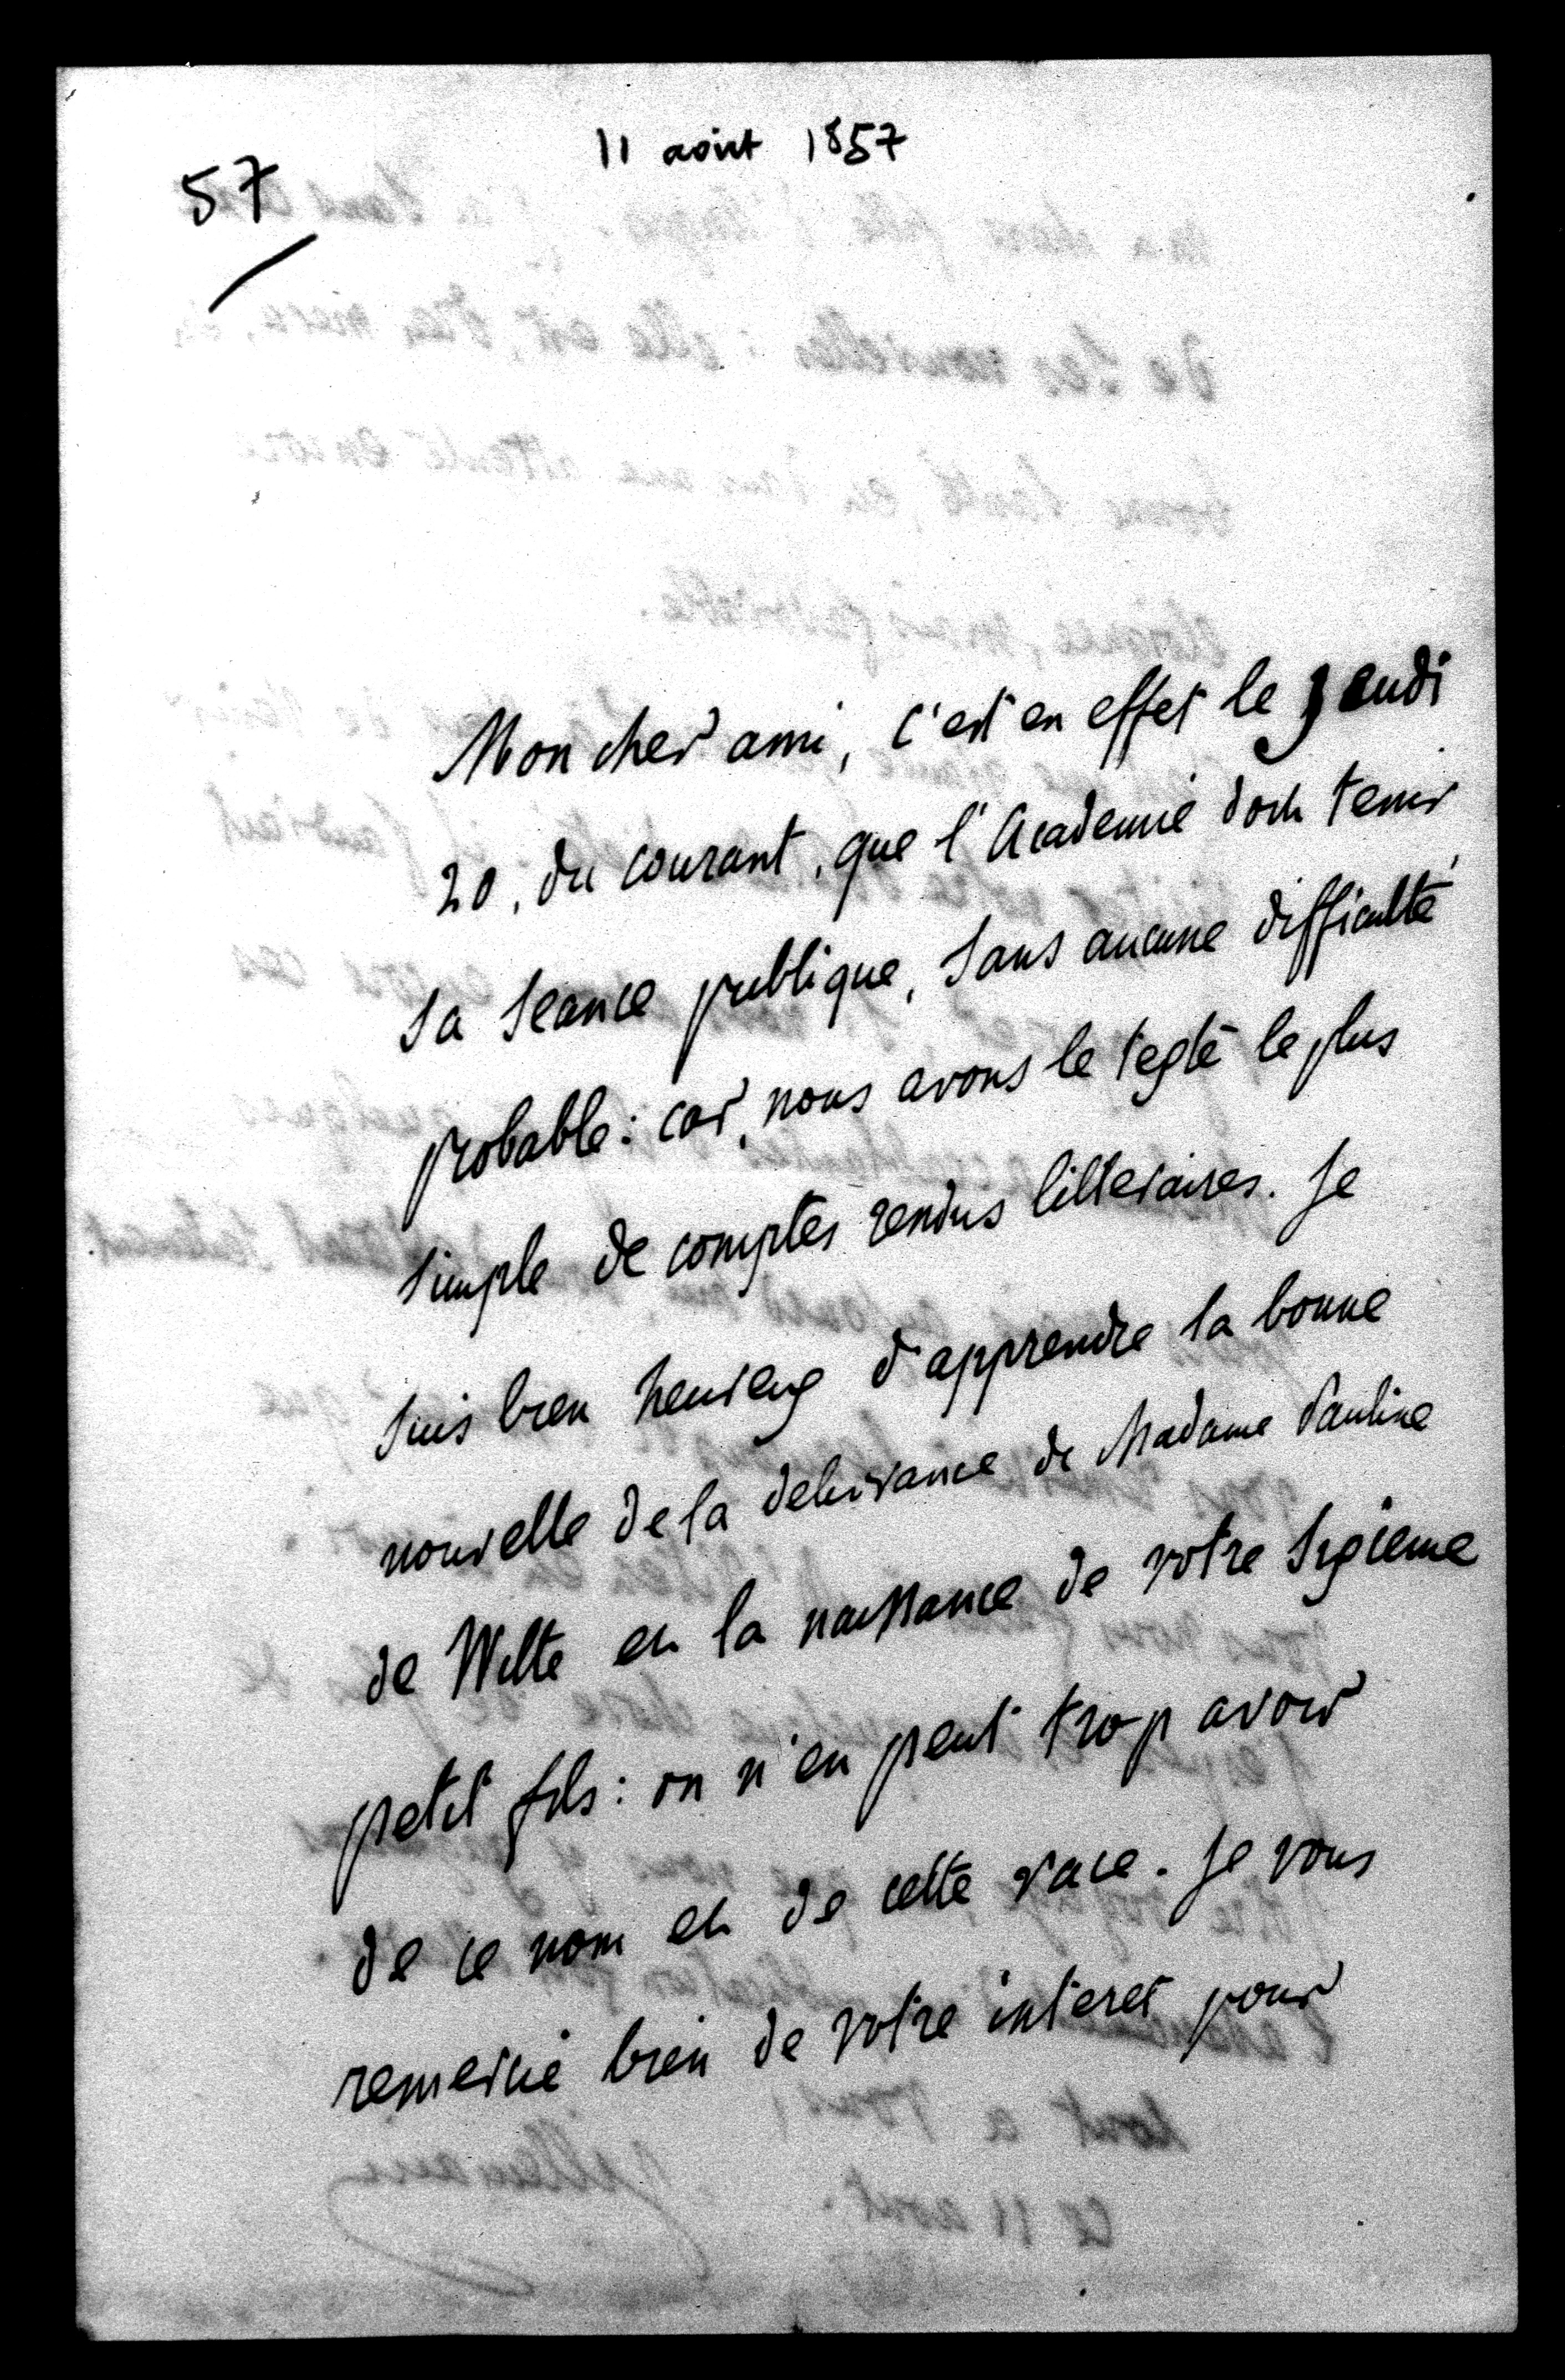 11 août 1857
57
Mon cher ami, c'est en effet le jeudi
20, du courant, que l'Academie doit tenir
sa seance publique, sans aucune difficulté
probable: car, nous avons le texte le plus
simple de comptes rendus litteraires. Je
suis bien heureux d'apprendre la bonne
nouvelle de la delivrance de Madame Pauline
de Witte et la naissance de votre sixieme
petit fils: on n'en peut trop avoir
de ce nom et de cette race. Je vous
remercie bien de votre interet pour